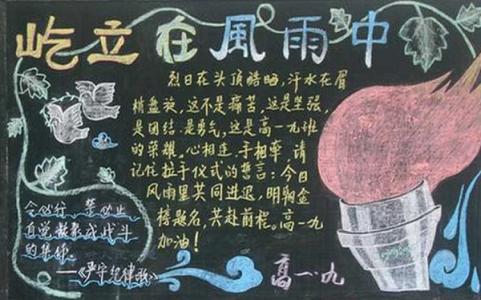 屹立在風雨中
烈日在头顶酷晒,汗水在眉
梢盘旋,这不是痛苦,这是坚强,
是团结.是勇气,这是高一九班
的荣耀,心相连.手相牵,请
记住拉手仪式的誓言:今日
风雨里共同进退,明朝金
榜题名,共赴前程。高一九
加油!
令必行 禁必止
自觉凝聚成战斗
的集体
——《严守纪律歌》
高一.九